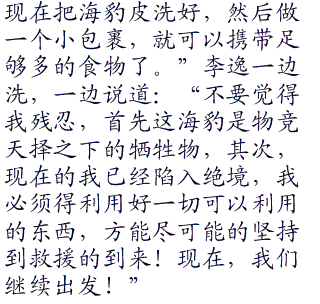 现在把海豹皮洗好，然后做
一个小包裹，就可以携带足
够多的食物了。”李逸一边
洗，一边说道：“不要觉得
我残忍，首先这海豹是物竞
天择之下的牺牲物，其次，
现在的我已经陷入绝境，我
必须得利用好一切可以利用
的东西，方能尽可能的坚持
到救援的到来！现在，我们
继续出发！”